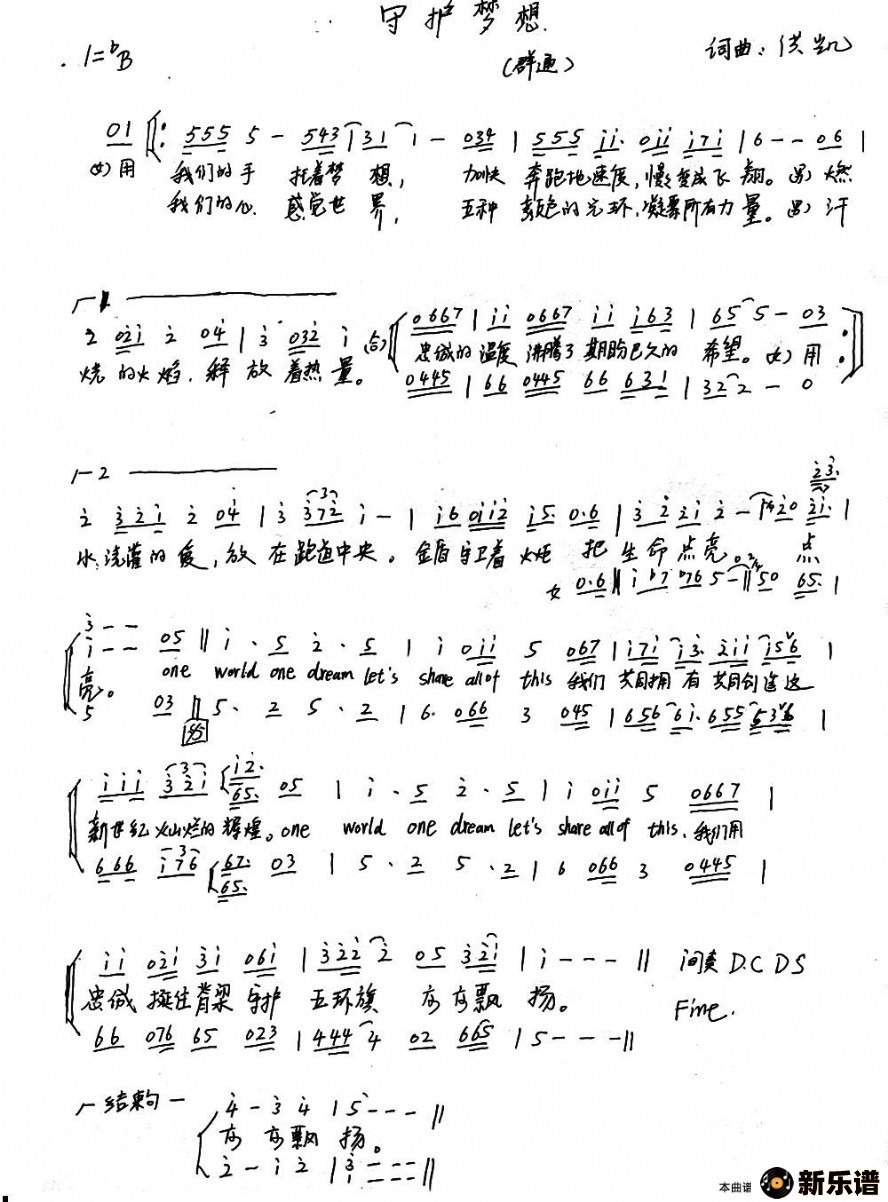 守护梦想
1=♭B
(群通)
词曲:洪凯
01 ‖: 555 5 - 543 | 31 1 - 034 | 555 i̇i̇. 0i̇i̇ i̇7i̇ | 6 - - 06 |
女)用 我们的手 托着梦 想, 加快 奔跑地速度,慢变成飞 翔。男)燃
我们的心 感觉世 界, 五种 颜色的光环,凝聚所有力 量。男)汗
┌1
2̇ 02̇i̇ 2̇ 04̇ | 3̇ 032̇ i̇ 合) 0667 | i̇i̇ 0667 i̇i̇ i̇63 | 65 5 - 03 :‖
烧 的火焰,释 放 着热 量。 忠诚的 温度 沸腾了 期盼已久的 希望。女)用
0445 | 66 0445 66 631 | 32 2 - 0
┌2
2̇ 3̇2̇i̇ 2̇ 04̇ | 3̇ 3̇72̇ i̇ - | i̇6 0i̇i̇2̇ i̇5. 0.6 | 3̇ 2̇ 2̇i̇ 2̇ - 2̇0 2̇i̇. |
水浇灌的爱,放 在跑道中央。金盾守卫着 火炬 把 生命点亮 点
女 0.6 ‖ i̇ ♭7 076 5 - ‖ 50 65. |
3̇ - -
i̇ - - 05 ‖ i̇ . 5 2̇ . 5 | i̇ 0i̇i̇ 5 067 | i̇7i̇ i̇3̇. 2̇i̇i̇ i̇56 |
亮。 one world one dream let's share all of this 我们 共同拥 有 共同创造这
5 03 ‖ 5 . 2 5 . 2 | 6. 066 3 045 | 656 6i̇. 655 536 |
i̇i̇i̇ 3̇2̇i̇ i̇2̇. 65. 05 | i̇ . 5 2̇ . 5 | i̇ 0i̇i̇ 5 0667 |
新世纪 火山烂的 辉煌。one world one dream let's share all of this,我们用
666 i̇76 67. 65. 03 | 5 . 2 5 . 2 | 6 066 3 0445 |
i̇i̇ 02̇i̇ 3̇i̇ 06i̇ | 3̇2̇2̇ 2̇ 05 3̇2̇i̇ | i̇ - - - ‖ 间奏 D.C D.S
忠诚 挺住 脊梁 守护 五环旗 方方飘 扬。 Fine.
66 076 65 023 | 444 4 02 665 | 5 - - - ‖
┌结束句
4̇ - 3̇ 4̇ | 5̇ - - - ‖
方 方飘 扬。
2̇ - i̇ 2̇ | 3̇ i̇ - - - ‖
本曲谱
新乐谱